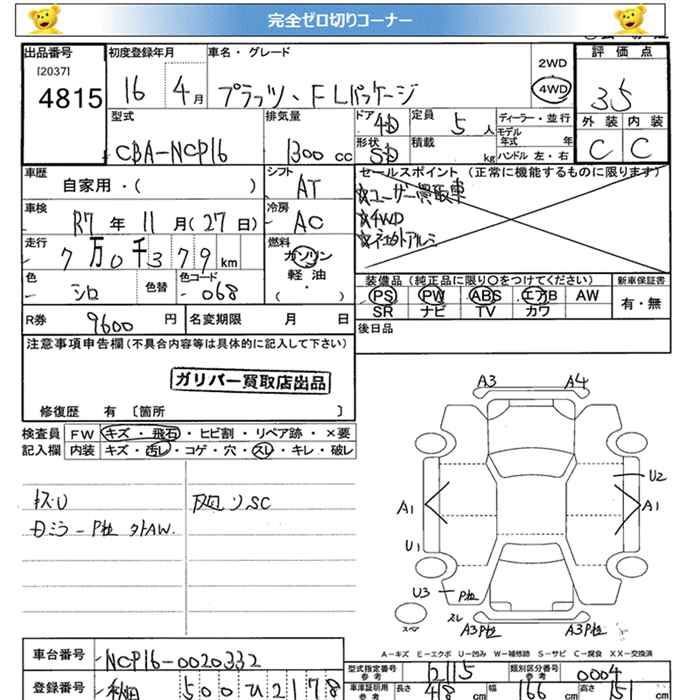 完全ゼロ切りコーナー
出品番号 初度登録年月 車名・グレード 評価点
[2037] 2WD
4815 16 4月 プラッツ、FLパッケージ 4WD 35
型式 排気量 ドア 4D 定員 5人 ディーラー・並行 外装 内装
CBA-NCP16 1300cc 形状 SD 積載 kg モデル年式 年 C C
ハンドル 左・右
車歴 シフト セールスポイント (正常に機能するものに限ります)
自家用・( ) AT ☆ユーザー買取車
車検 冷房 ☆4WD
R7年11月(27日) AC ☆社外アルミ
走行 燃料
7万0千379km ガソリン
色 色替 色コード 軽油 装備品(純正品に限り○をつけてください) 新車保証書
シロ 068 ・( ) PS PW ABS エアB AW 有・無
SR ナビ TV カワ
R券 9600円 名変期限 月 日 後日品
注意事項申告欄(不具合内容等は具体的に記入して下さい)
ガリバー買取店出品
修復歴 有 〔箇所 〕
検査員 FW キズ・飛石・ヒビ割・リペア跡・×要
記入欄 内装 キズ・汚レ・コゲ・穴・スレ・キレ・破レ
A3 A4
U2
A1 A1
U1
U3 P粒
スレ
スペア A3P粒 A3P粒
キズU 下回りSC
Dミラ-P粒 外AW.
A-キズ E-エクボ U-凹み W-補修跡 S-サビ C-腐食 XX-交換済
車台番号 NCP16-0020332 型式指定番号 参考 12115 類別区分番号 参考 0004
登録番号 秋田 500ひ2178 車庫証明用 参考 長さ 418cm 幅 166cm 高さ 151cm